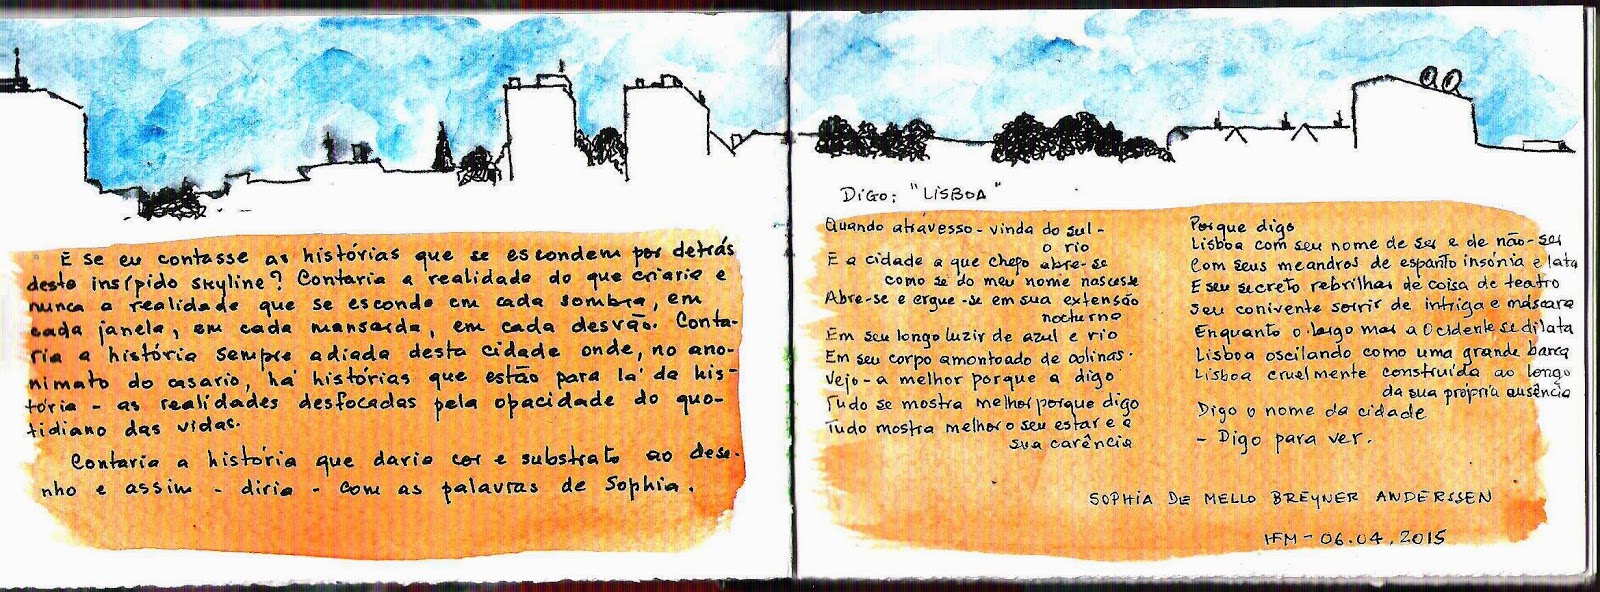 E se eu contasse as histórias que se escondem por detrás
deste insípido skyline? Contaria a realidade do que criaria e
nunca a realidade que se esconde em cada sombra, em
cada janela, em cada mansarda, em cada desvão. Conta-
ria a história sempre adiada desta cidade onde, no ano-
nimato do casario, há histórias que estão para lá da his-
tória - as realidades desfocadas pela opacidade do quo-
tidiano das vidas.
Contaria a história que daria cor e substrato ao dese-
nho e assim - diria - com as palavras de Sophia.
DIGO: "LISBOA"
Quando atravesso - vinda do sul -
o rio
E a cidade a que chego abre-se
como se do meu nome nascesse
Abre-se e ergue-se em sua extensão
nocturna
Em seu longo luzir de azul e rio
Em seu corpo amontoado de colinas.
Vejo-a melhor porque a digo
Tudo se mostra melhor porque digo
Tudo mostra melhor o seu estar e a
sua carência
Porque digo
Lisboa com seu nome de ser e de não-ser
Com seus meandros de espanto insónia e lata
E seu secreto rebrilhar de coisa de teatro
Seu conivente sorrir de intriga e máscara
Enquanto o largo mar a Ocidente se dilata
Lisboa oscilando como uma grande barca
Lisboa cruelmente construída ao longo
da sua própria ausência
Digo o nome da cidade
- Digo para ver.
SOPHIA DE MELLO BREYNER ANDERSSEN
HFM - 06.04.2015